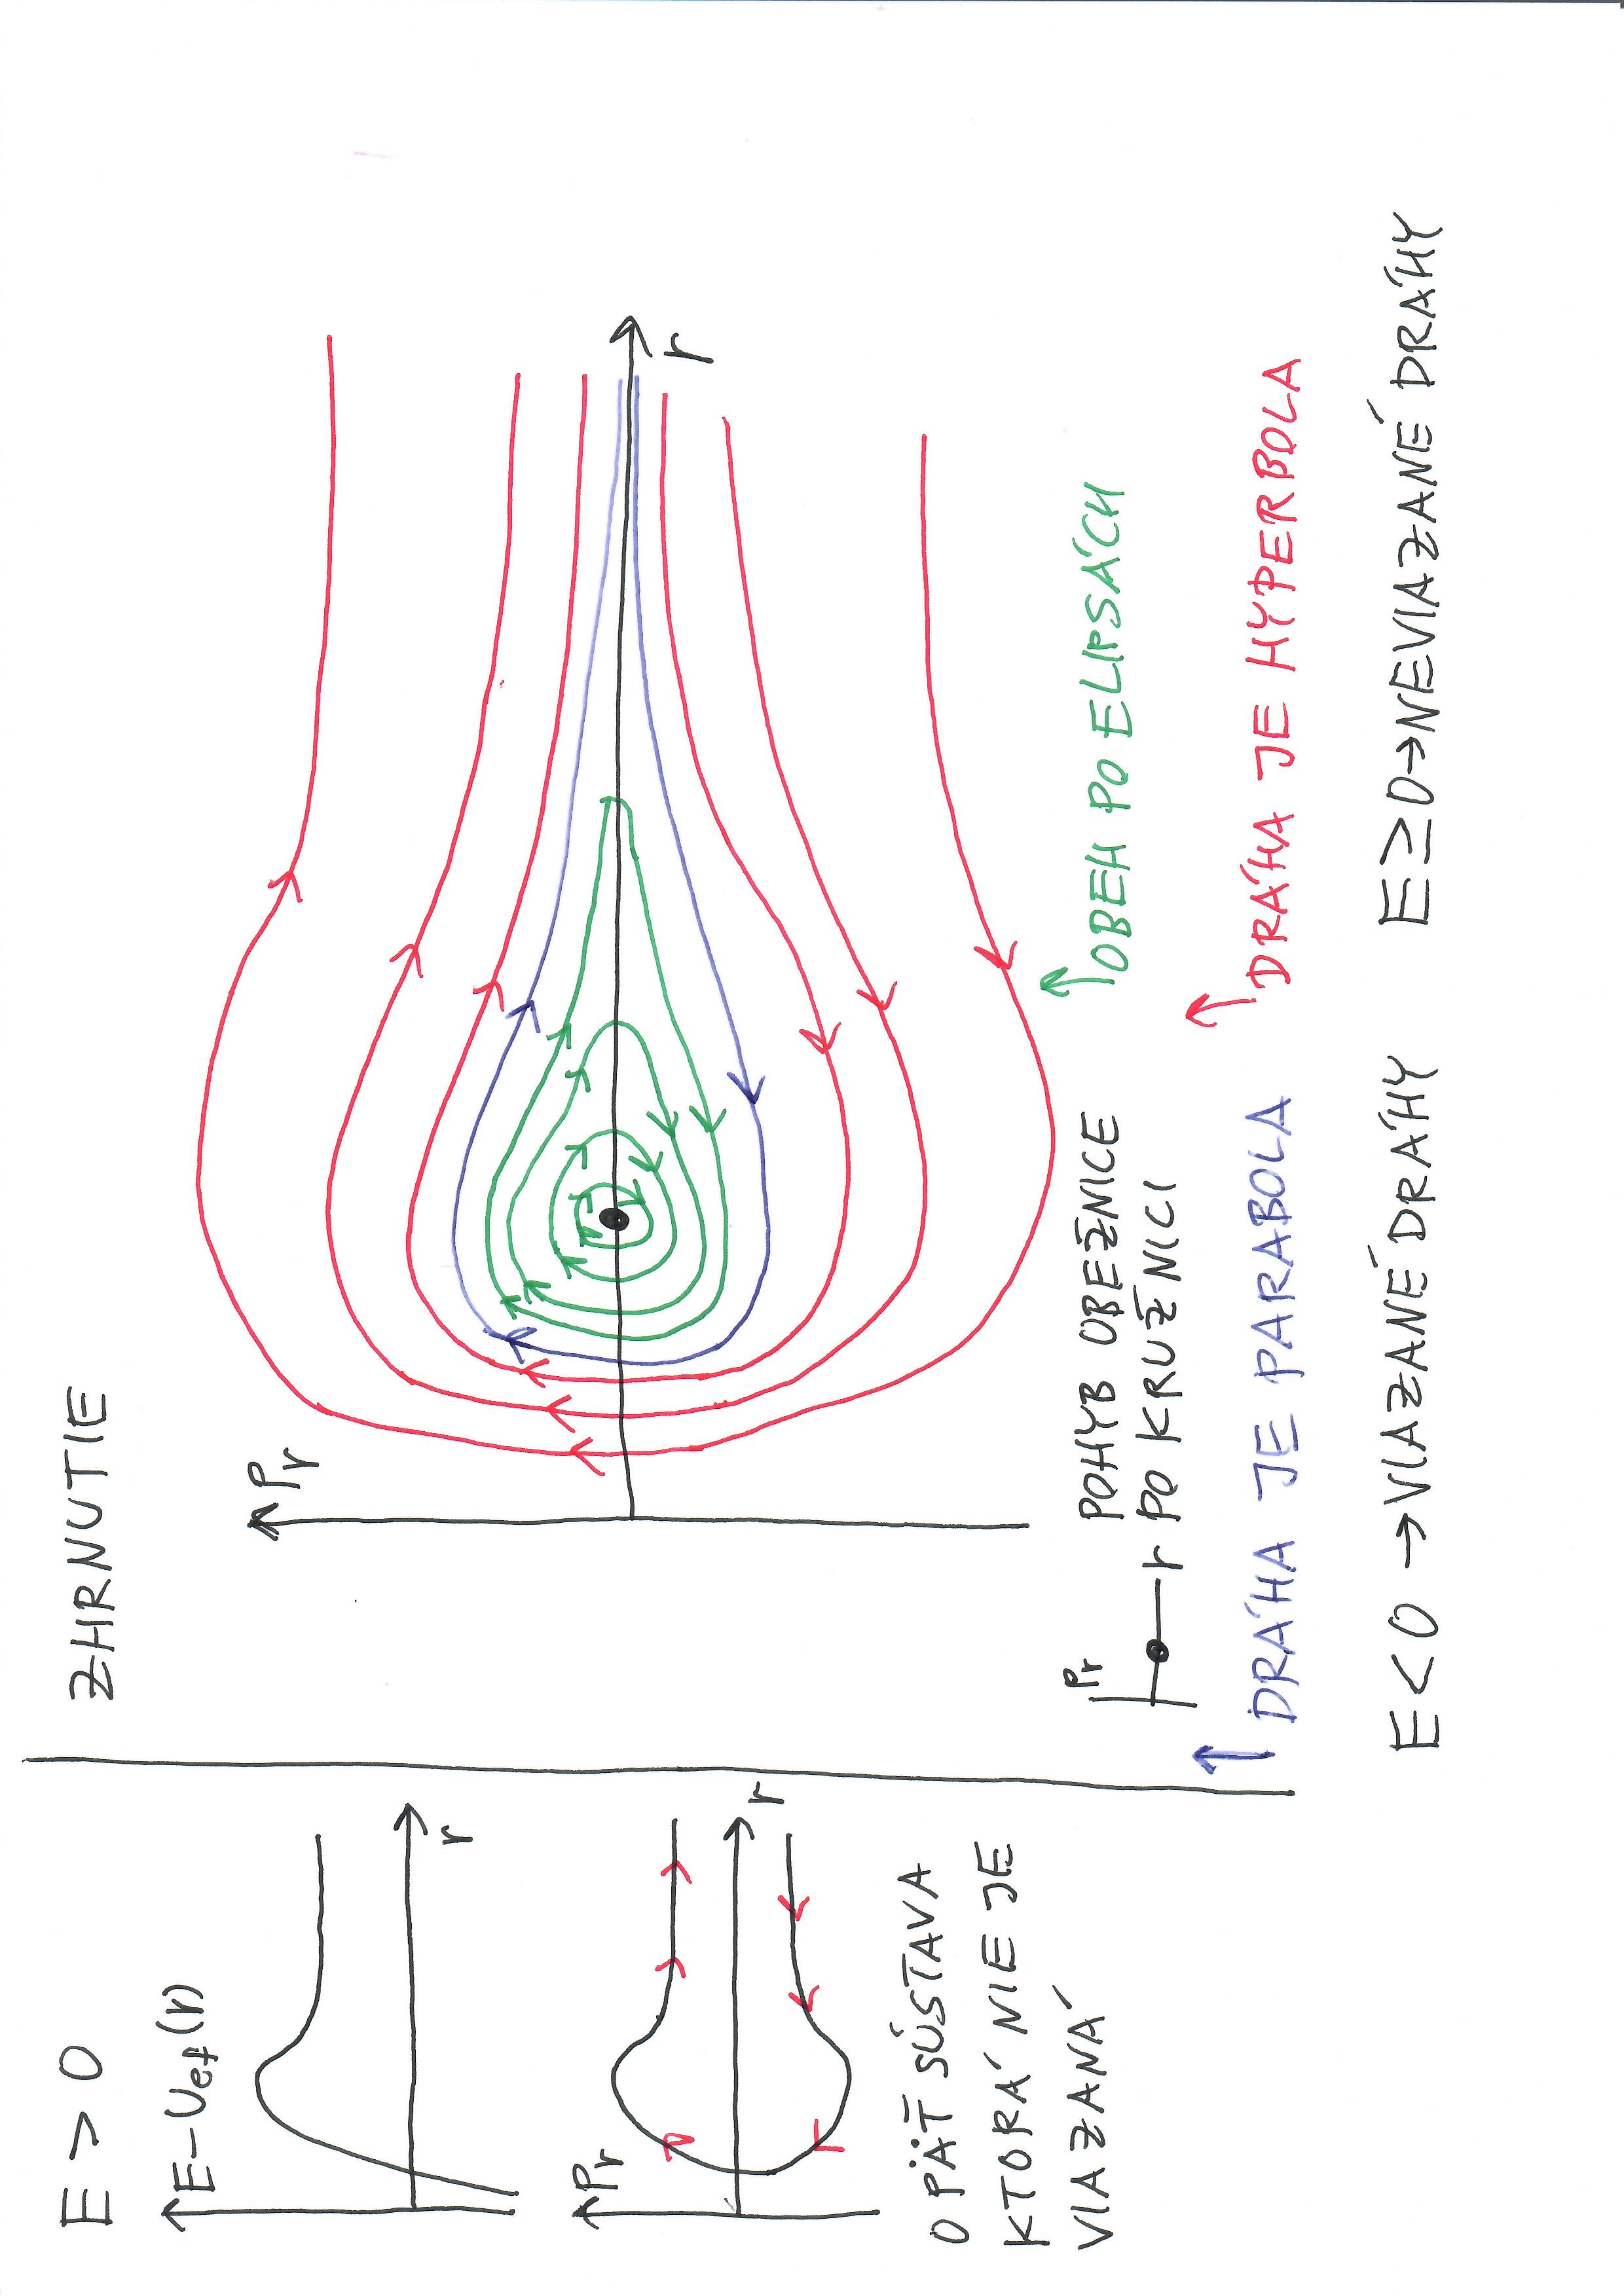 E > 0
E-Uef(r)
r
Pr
r
OPÄŤ SÚSTAVA
KTORÁ NIE JE
VIAZANÁ
ZHRNUTIE
Pr
r
Pr
r
POHYB OBEŽNICE
PO KRUŽNICI
OBEH PO ELIPSÁCH
DRÁHA JE PARABOLA
DRÁHA JE HYPERBOLA
E < 0 → VIAZANÉ DRÁHY E ≥ 0 → NEVIAZANÉ DRÁHY